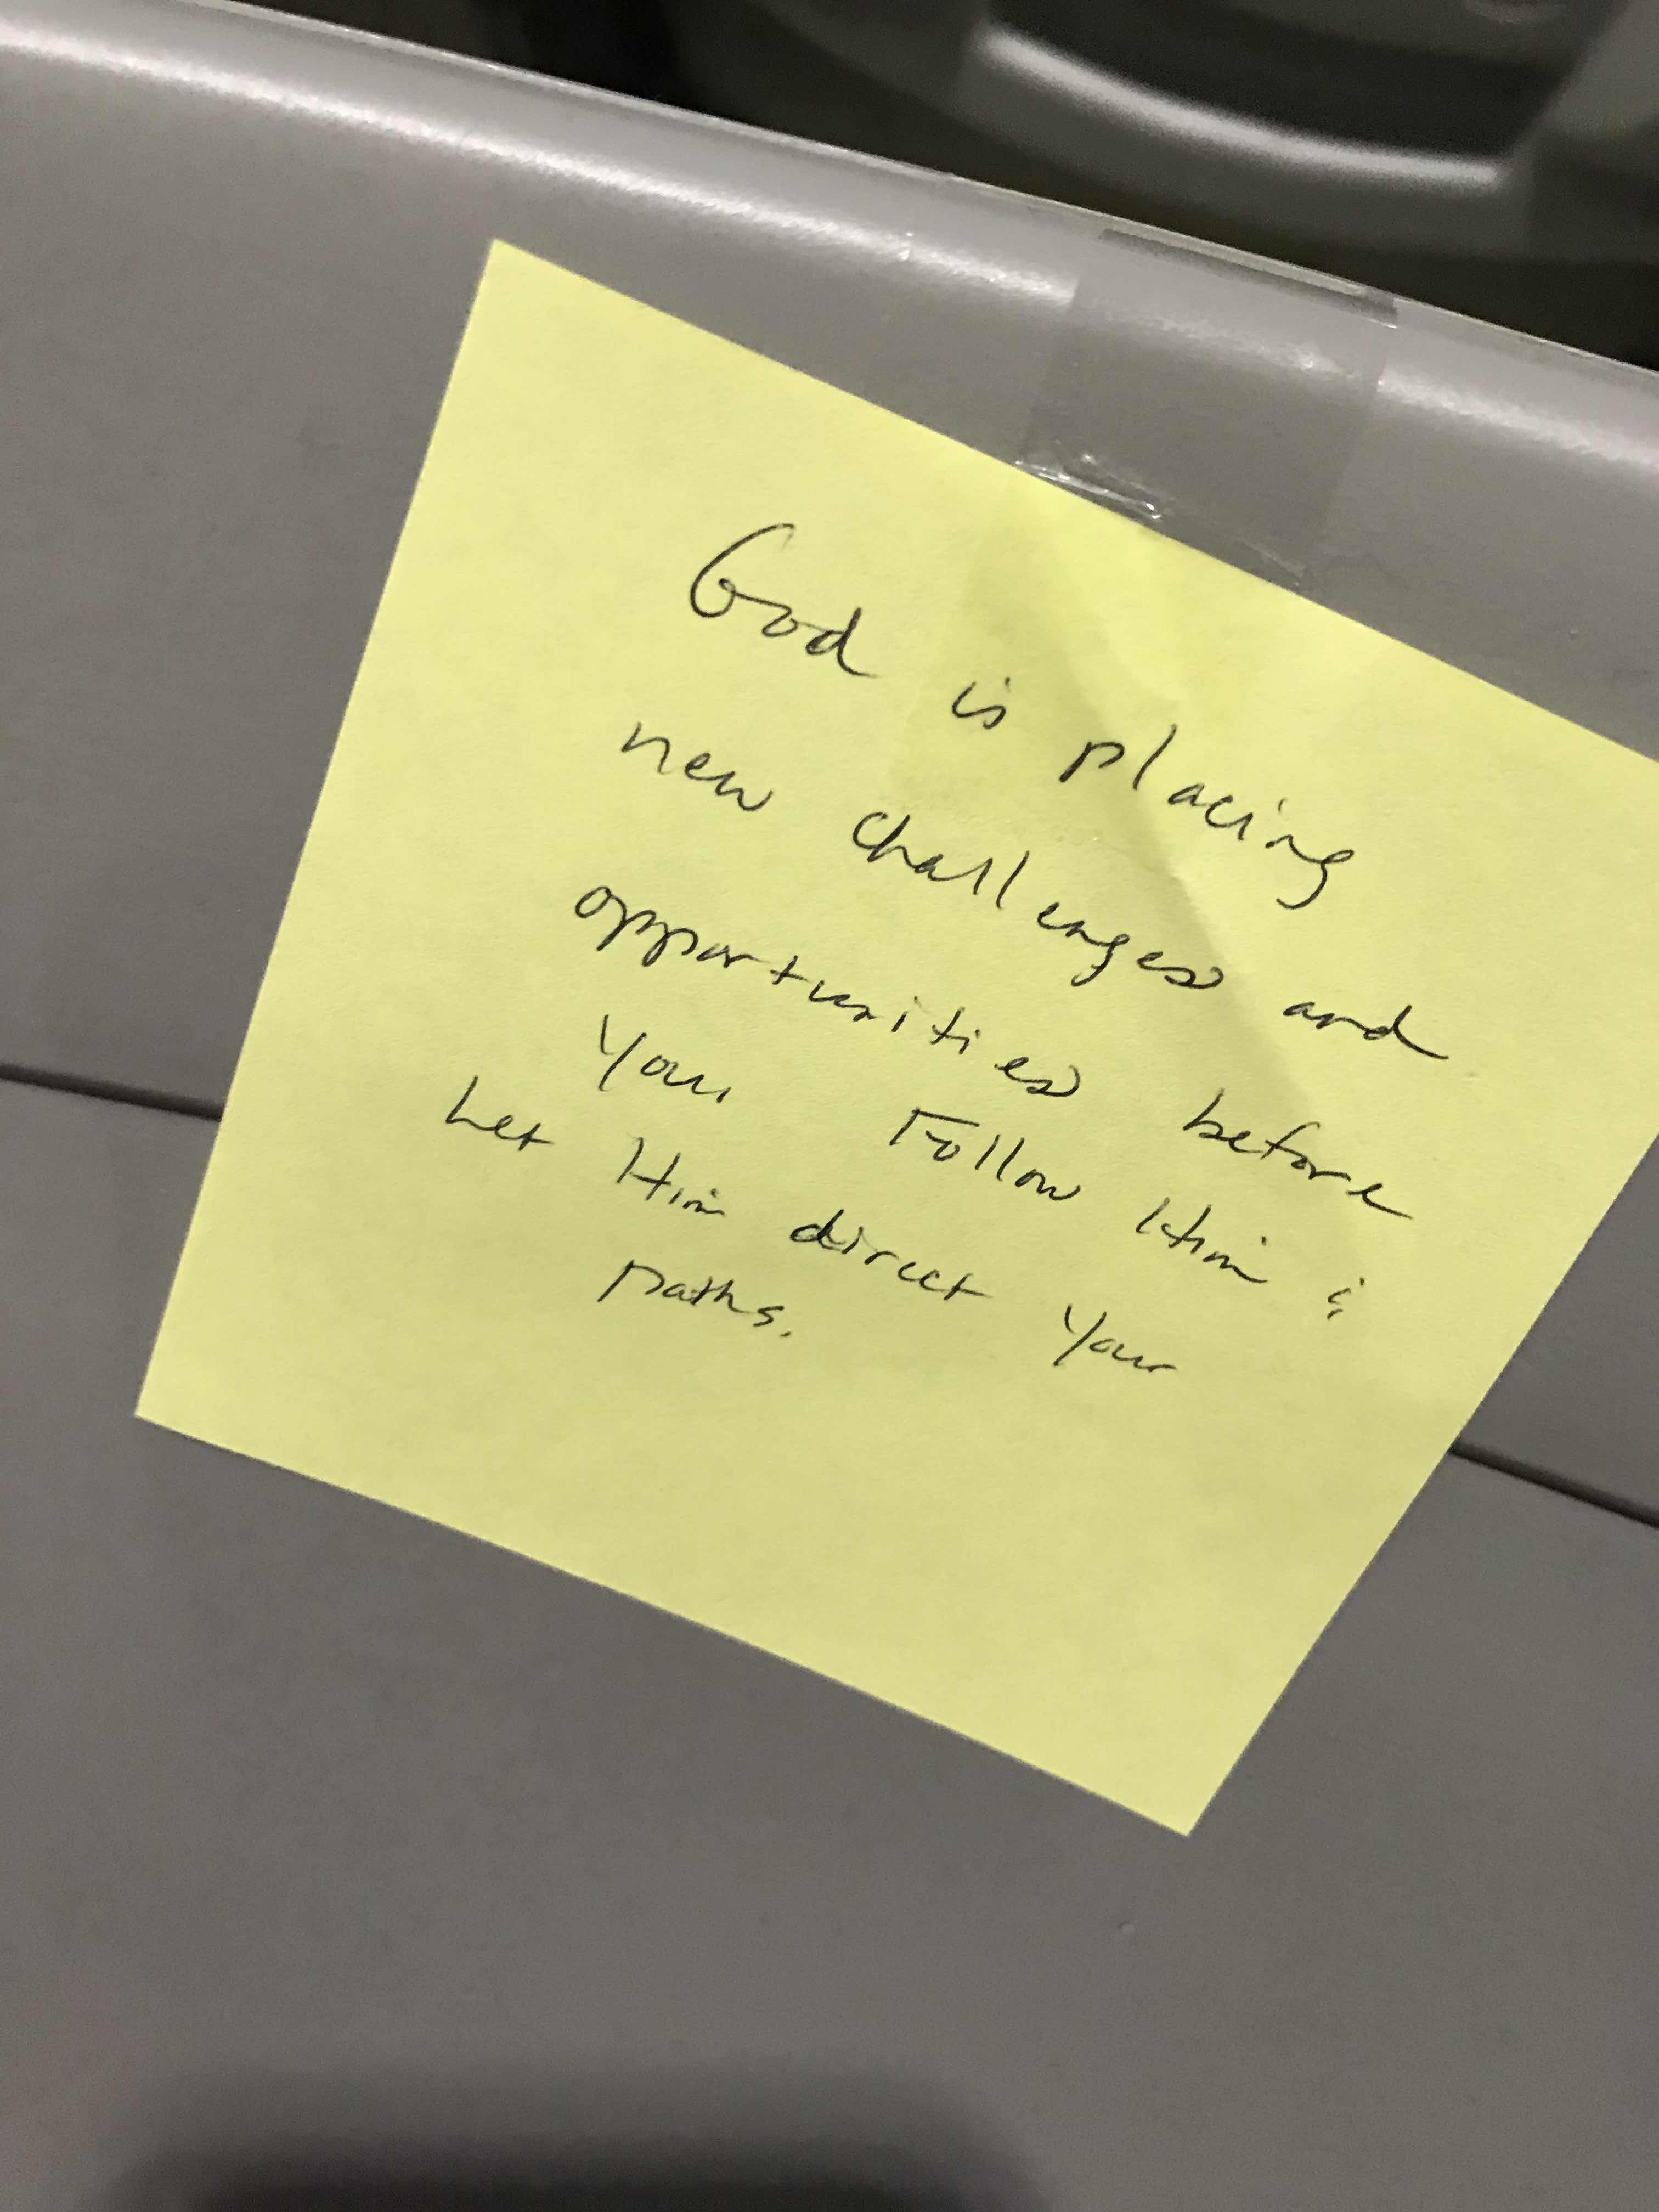 God is placing
new challenges and
opportunities before
you. Follow Him &
Let Him direct your
paths.